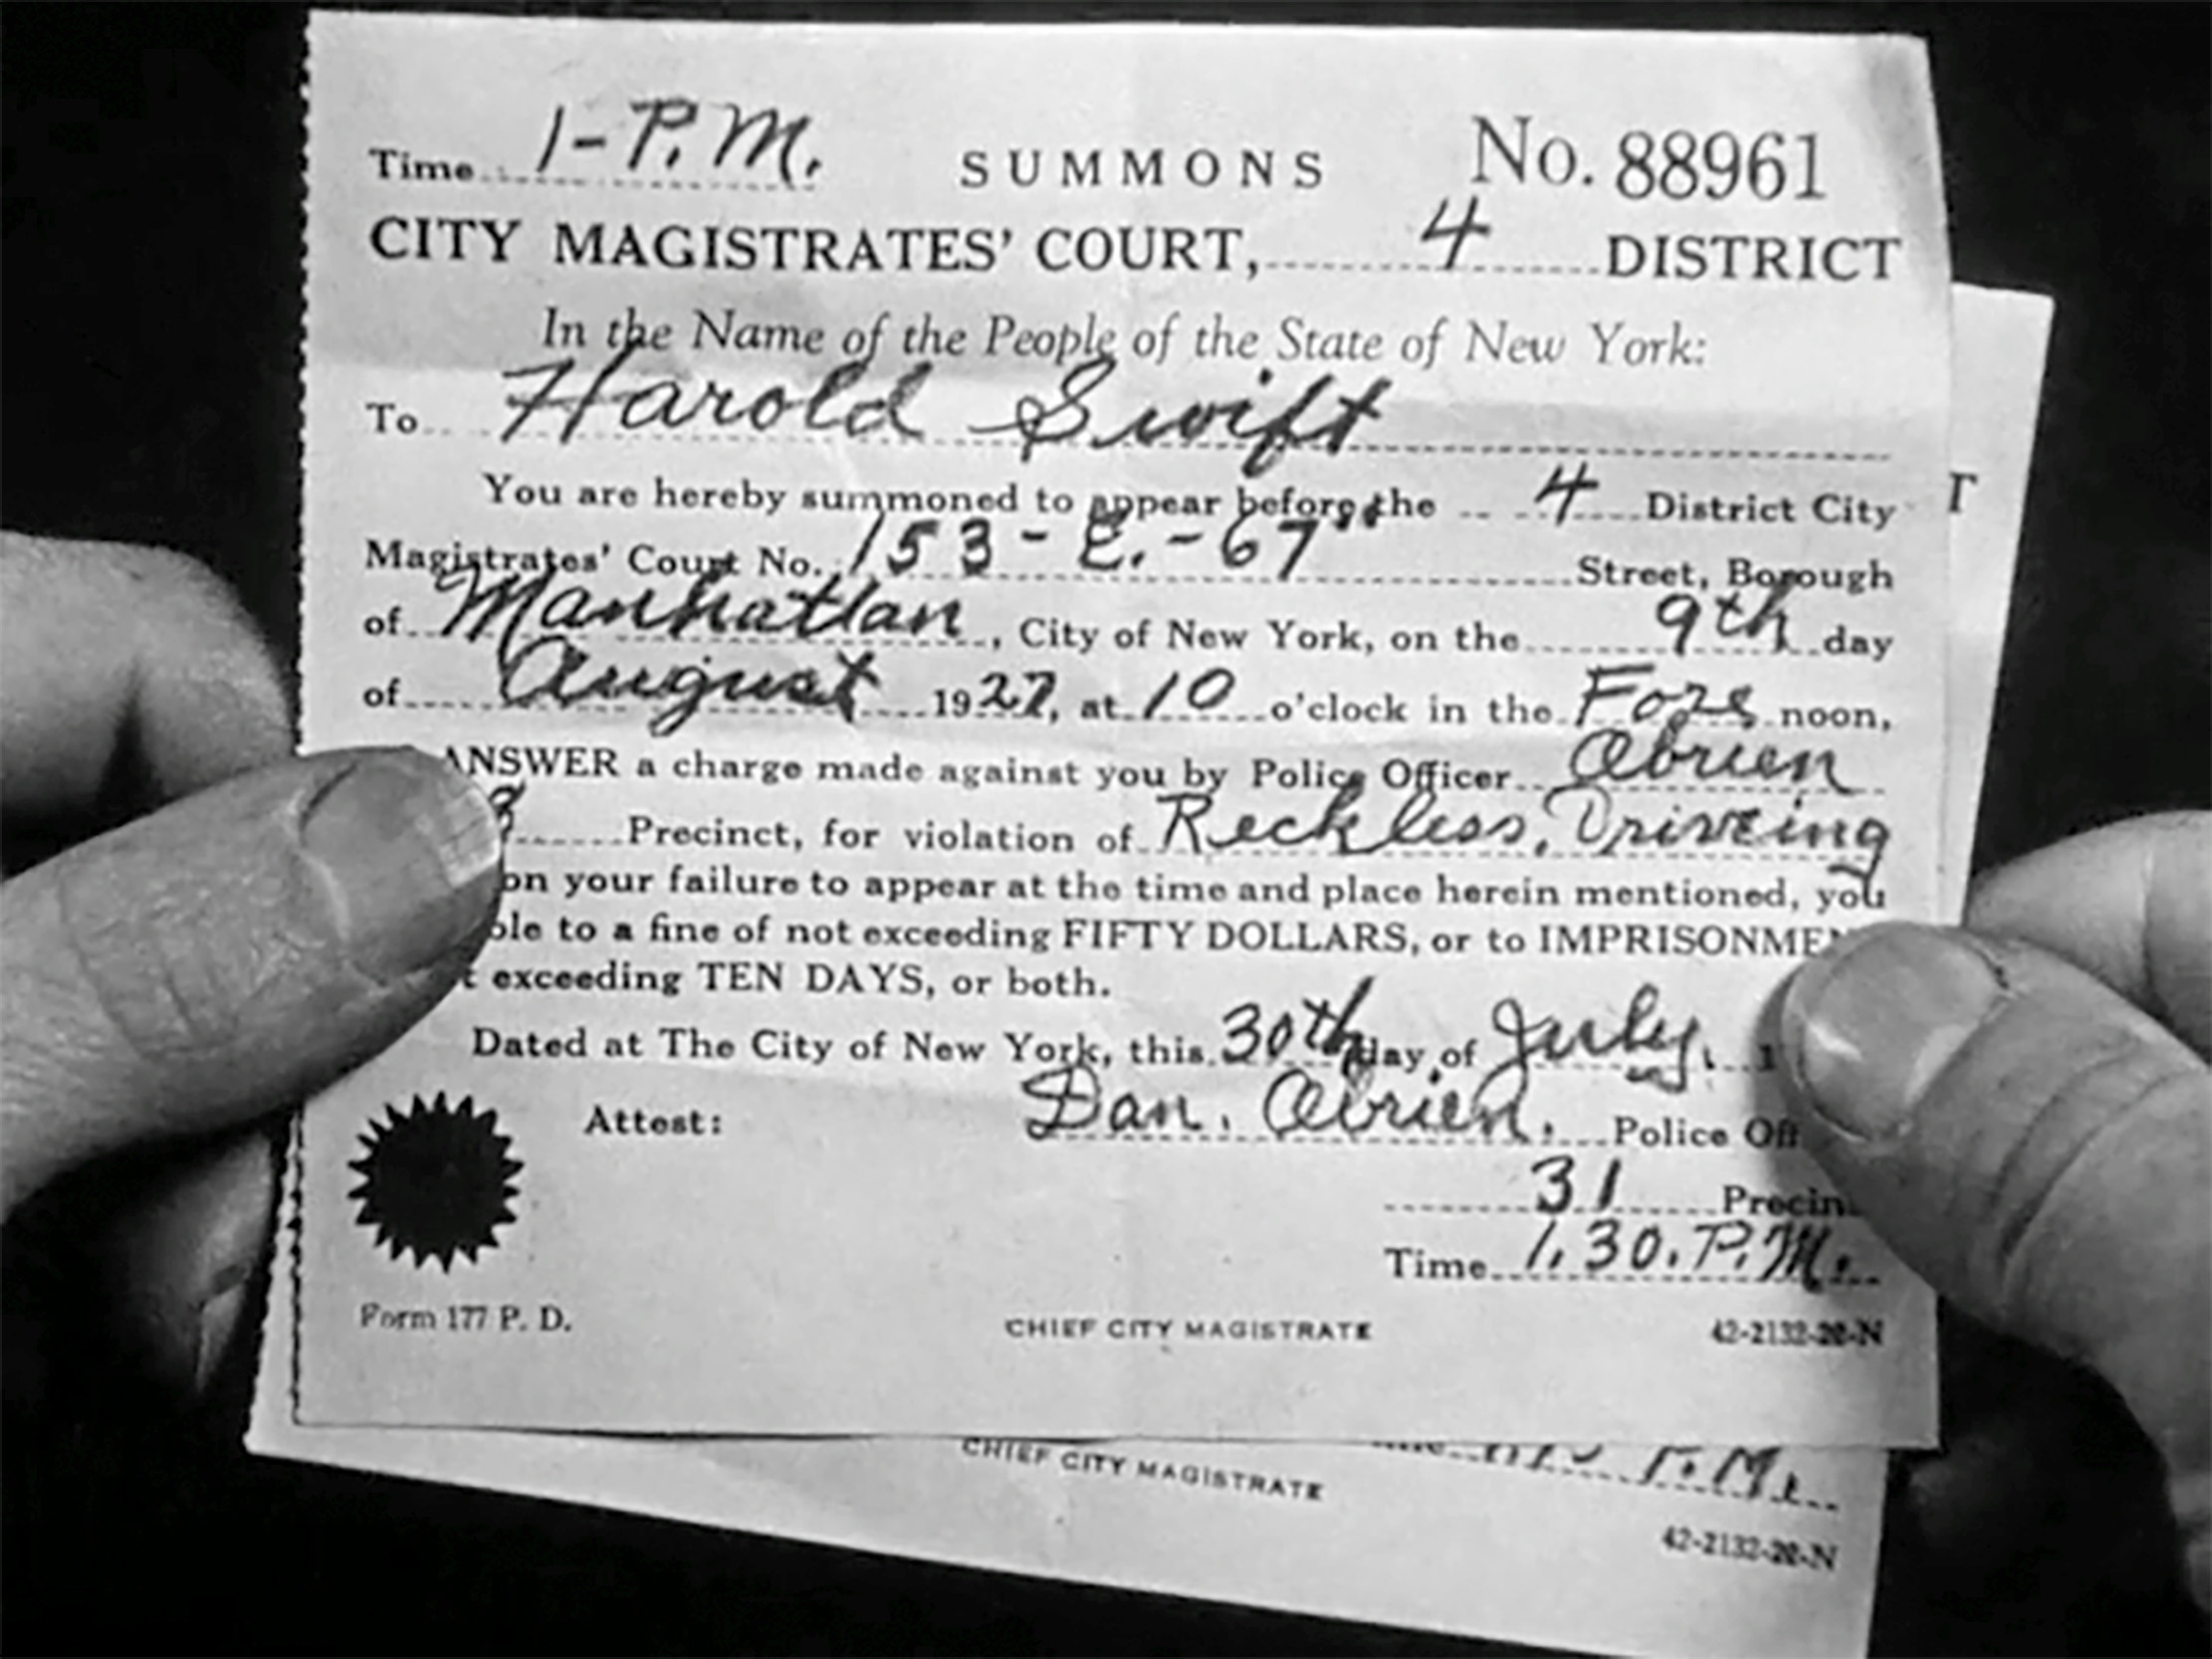 Time 1-P.M. SUMMONS No. 88961
CITY MAGISTRATES' COURT, 4 DISTRICT
In the Name of the People of the State of New York:
To Harold Swift
You are hereby summoned to appear before the 4 District City
Magistrates' Court No. 153-E.-67" Street, Borough
of Manhattan, City of New York, on the 9th day
of August 1927, at 10 o'clock in the Fore noon,
ANSWER a charge made against you by Police Officer Obrien
Precinct, for violation of Reckless, Driveing
on your failure to appear at the time and place herein mentioned, you
ble to a fine of not exceeding FIFTY DOLLARS, or to IMPRISONME
t exceeding TEN DAYS, or both.
Dated at The City of New York, this 30th day of July, 1
Attest: Dan. Obrien. Police Off
31 Precin
Time 1.30.P.M.
Form 177 P. D. CHIEF CITY MAGISTRATE 42-2132-20-N
T
P.M.
CHIEF CITY MAGISTRATE
42-2132-20-N